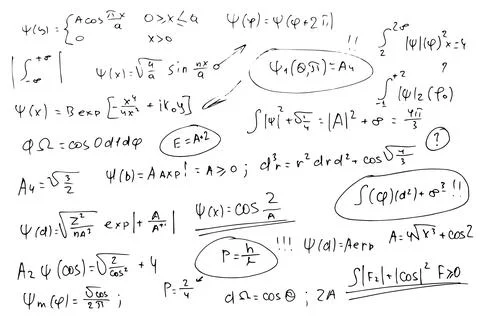 Ψ(b) = { A cos πx/a   0 ≥ x ≤ a
0   x > 0
Ψ(φ) = Ψ(φ + 2π)
∫₂^2∞ |Ψ|(φ)² x = 4
|∫₋∞^+∞
Ψ(x) = √4/a sin nx/a
Ψ₁(Θ, π) = A₄ !!
?
Ψ(x) = B exp [- x⁴/4x² + ik₀y]
∫|Ψ|² + √1/4 = |A|² + ∞ = 4π/3
∫₋₁^+2 |Ψ|₂ (φ₀)
φΩ = cos Θ d1dφ
E = A+2
?
A₄ = √3/2
Ψ(b) = A Axp! = A ≥ 0 ; d³r = r² drd² + cos √4/3
∫(Cφ)(d²) + ∞³ !!
Ψ(d) = √Z²/nA² exp |+ A/A⁺¹|
Ψ(x) = cos 2/A
P = h/λ !!!
Ψ(d) = Aerp
A = 4√x³ + cos2
A₂ Ψ(cos) = √2/cos² + 4
Ψm(φ) = √cos/2π ;
P = 2/4
dΩ = cos Θ ; 2A
∫|F₂| + |cos|² F ≥ 0